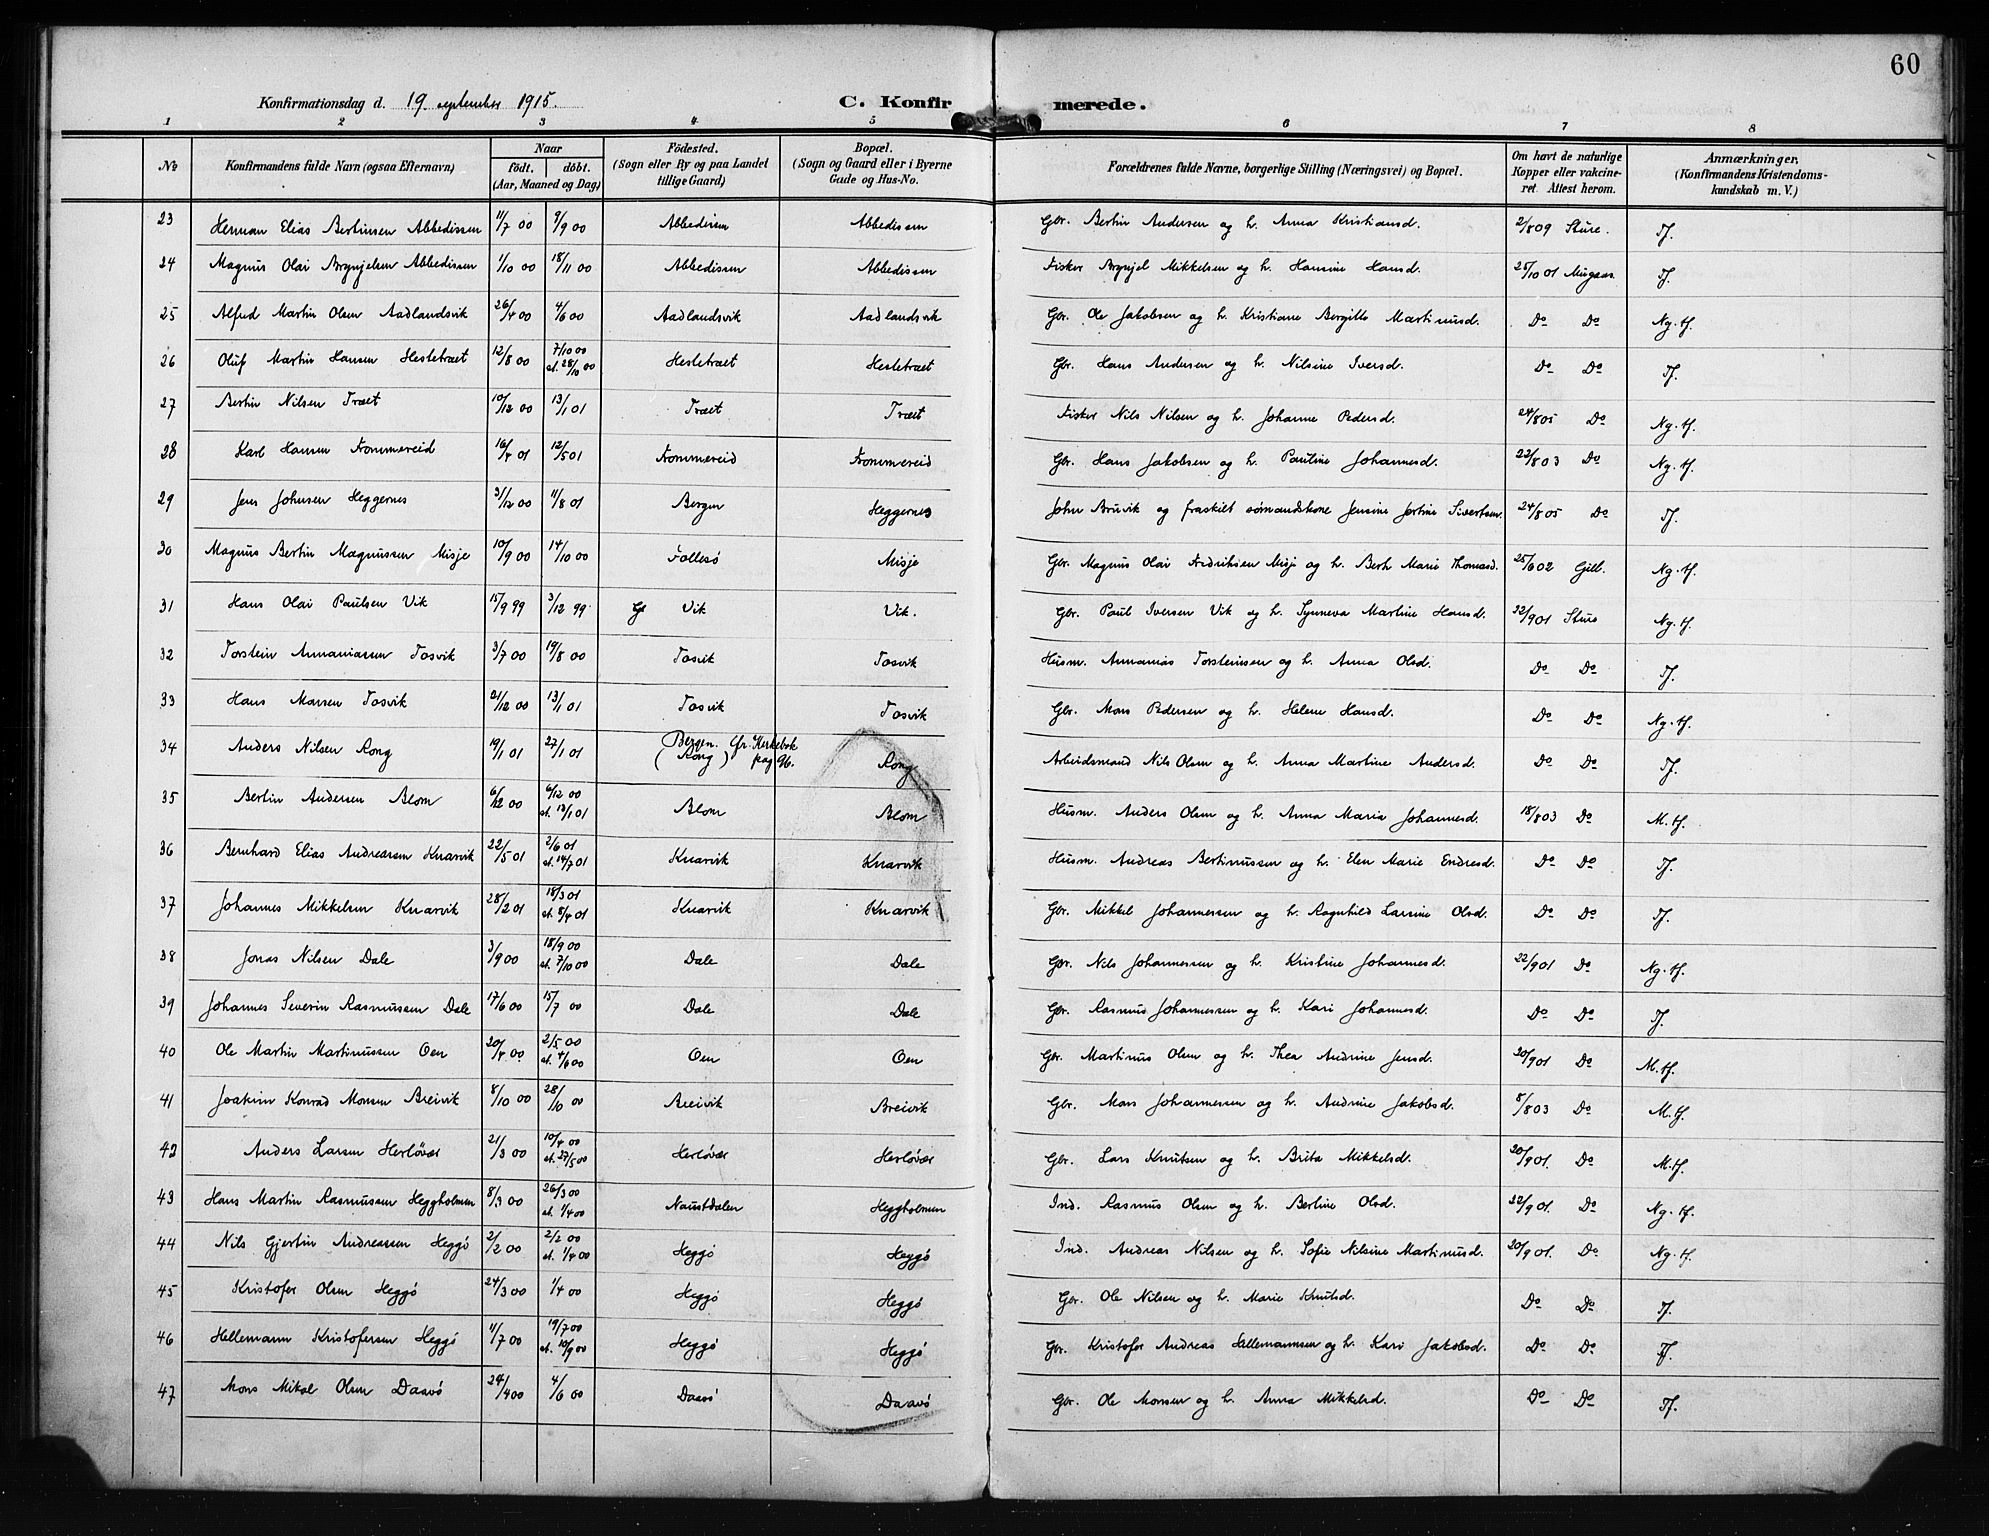 60
Konfirmationsdag d. 19 september 1915.
C. Konfirmerede.
1 2 3 4 5 6 7 8
No
Konfirmandens fulde Navn (ogsaa Efternavn)
Naar
födt. döbt.
(Aar, Maaned og Dag)
Födested.
(Sogn eller By og paa Landet
tillige Gaard)
Bopæl.
(Sogn og Gaard eller i Byerne
Gade og Hus-No.
Forældrenes fulde Navne, borgerlige Stilling (Næringsvei) og Bopæl.
Om havt de naturlige
Kopper eller vakcine-
ret. Attest herom.
Anmærkninger.
(Konfirmandens Kristendoms-
kundskab m. V.)
23 Herman Elias Bertinsen Abbedissen 11/7 00 9/9 00 Abbedissen Abbedissen Gbr. Bertin Andersen og h. Anna Kristiansd. 2/8 09 Sture. Tf.
24 Magnus Olai Brynjelsen Abbedissen 1/10 00 18/11 00 Abbedissen Abbedissen Fisker Brynjel Mikkelsen og h. Hansine Hansd. 25/10 01 Mugaas Tf.
25 Alfred Martin Olsen Aadlandsvik 26/4 00 4/6 00 Aadlandsvik Aadlandsvik Gbr. Ole Jakobsen og h. Kristiane Bergitte Martinusd. Do Do Ng. tf.
26 Oluf Martin Hansen Hestetræet 12/8 00 7/10 00 st. 28/10 00 Hestetræet Hestetræet Gbr. Hans Andersen og h. Nilsine Iversd. Do Do Tf.
27 Bertin Nilsen Træet 10/12 00 13/1 01 Træet Træet Fisker Nils Nilsen og h. Johanne Pedersd. 24/8 05 Do Ng. tf.
28 Karl Hansen Frommereid 16/4 01 12/5 01 Frommereid Frommereid Gbr. Hans Jakobsen og h. Pauline Johannesd. 22/8 03 Do Ng. tf.
29 Jens Johnsen Heggernes 31/12 00 11/8 01 Bergen Heggernes John Bruvik og fraskilt sömandskone Jensine Jortine Sivertsen. 24/8 05 Do Tf.
30 Magnus Bertin Magnussen Misje 10/9 00 14/10 00 Follesö Misje Gbr. Magnus Olai Fredriksen Misje og h. Berte Marie Thomasd. 25/6 02 Gill. Ng. tf.
31 Hans Olai Paulsen Vik 15/9 99 3/12 99 Vik Vik. Gbr. Paul Iversen Vik og h. Synneva Martine Hansd. 22/9 01 Sture Ng. tf.
32 Torstein Annaniassen Tosvik 3/7 00 19/8 00 Tosvik Tosvik Husm. Annanias Torsteinsen og h. Anna Olsd. Do Do Tf.
33 Hans Monsen Tosvik 21/12 00 13/1 01 Tosvik Tosvik Gbr. Mons Pedersen og h. Helene Hansd. Do Do Ng. tf.
34 Anders Nilsen Rong 19/1 01 27/1 01 Bergen. Cfr. Kirkebok (Rong) pag 96. Rong Arbeidsmand Nils Olsen og h. Anna Martine Andersd. Do Do Tf.
35 Bertin Andersen Blom 6/12 00 6/12 00 st. 13/1 01 Blom Blom Husm. Anders Olsen og h. Anna Maria Johannesd. 18/8 03 Do M. tf.
36 Bernhard Elias Andreassen Knarvik 22/5 01 2/6 01 st. 14/7 01 Knarvik Knarvik Husm. Andreas Bertinussen og h. Elen Marie Endresd. Do Do Tf.
37 Johannes Mikkelsen Knarvik 28/2 01 18/3 01 st. 8/4 01 Knarvik Knarvik Gbr. Mikkel Johannessen og h. Ragnhild Larsine Olsd. Do Do Tf.
38 Jonas Nilsen Dale 3/9 00 18/9 00 st. 7/10 00 Dale Dale Gbr. Nils Johannessen og h. Kristine Johannesd. 22/9 01 Do Ng. tf.
39 Johannes Severin Rasmussen Dale 17/6 00 15/7 00 Dale Dale Gbr. Rasmus Johannessen og h. Kari Johannesd. Do Do Tf.
40 Ole Martin Martinussen Oen 20/4 00 2/5 00 st. 4/6 00 Oen Oen Gbr. Martinus Olsen og h. Thea Andrine Jensd. 20/9 01 Do M. tf.
41 Joakim Konrad Monsen Breivik 8/10 00 28/10 00 Breivik Breivik Gbr. Mons Johannessen og h. Andrine Jakobsd. 8/8 03 Do M. tf.
42 Anders Larsen Herlövær 21/3 00 10/4 00 st. 27/5 00 Herlövær Herlövær Gbr. Lars Knutsen og h. Brita Mikkelsd. 20/9 01. Do M. tf.
43 Hans Martin Rasmussen Heggholmen 8/3 00 26/3 00 st. 1/4 00 Naustdalen Heggholmen Ind. Rasmus Olsen og h. Bertine Olsd. 22/9 01. Do Ng. tf.
44 Nils Gjertin Andreassen Heggö 2/2 00 2/2 00 st. 1/4 00 Heggö Heggö Ind. Andreas Nilsen og h. Sofie Nilsine Martinusd. 20/9 01. Do Ng. tf.
45 Kristofer Olsen Heggö 24/3 00 1/4 00 Heggö Heggö Gbr. Ole Nilsen og h. Marie Knutsd. Do Do Tf.
46 Hellemann Kristofersen Heggö 11/7 00 19/7 00 st. 10/9 00 Heggö Heggö Gbr. Kristofer Andreas Hellemannsen og h. Kari Jakobsd. Do Do Tf.
47 Mons Mikal Olsen Daavö 24/4 00 4/6 00 Daavö Daavö Gbr. Ole Monsen og h. Anna Mikkelsd. Do Do Tf.